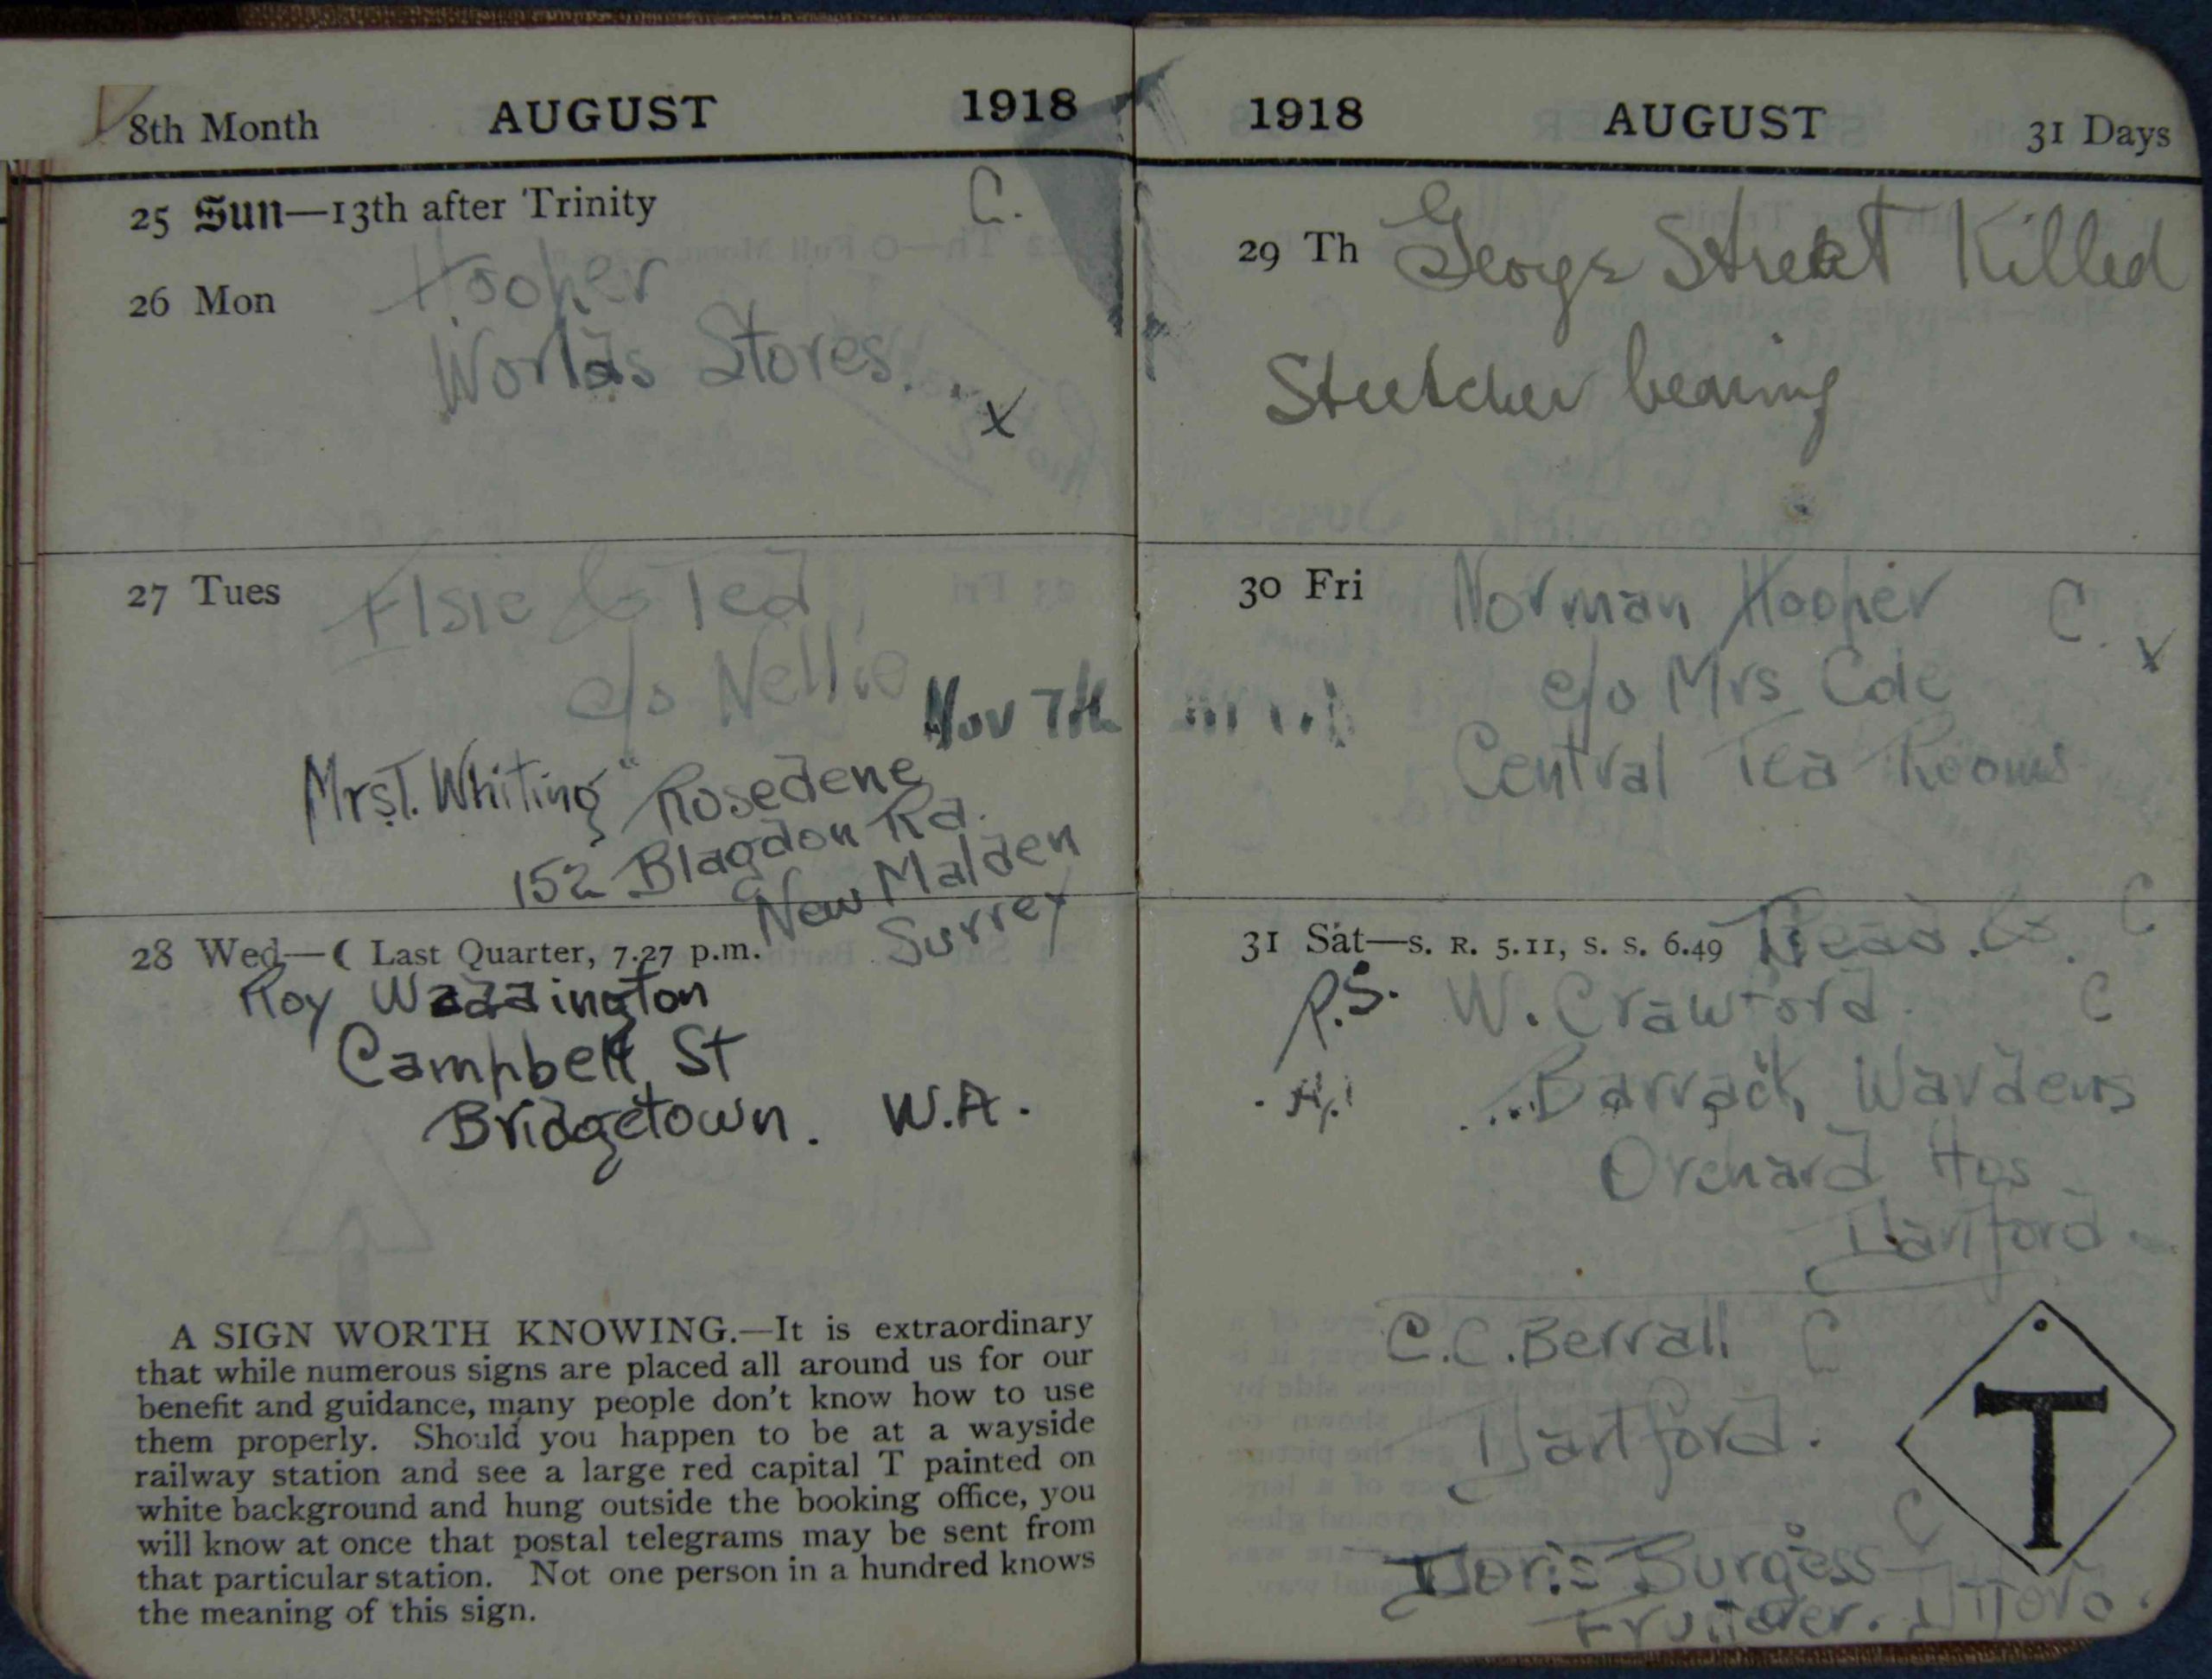 8th Month AUGUST 1918
25 Sun—13th after Trinity C.
26 Mon Hooper
Worlds Stores. x
27 Tues Elsie & Ted
c/o Nellie
Nov 7th
Mrs T. Whiting "Rosedene
152 Blagdon Rd.
New Malden
Surrey
28 Wed—☾ Last Quarter, 7.27 p.m.
Roy Waddington
Campbell St
Bridgetown. W.A.
A SIGN WORTH KNOWING.—It is extraordinary
that while numerous signs are placed all around us for our
benefit and guidance, many people don't know how to use
them properly. Should you happen to be at a wayside
railway station and see a large red capital T painted on
white background and hung outside the booking office, you
will know at once that postal telegrams may be sent from
that particular station. Not one person in a hundred knows
the meaning of this sign.
1918 AUGUST 31 Days
29 Th George Street Killed
Stretcher bearing
30 Fri Norman Hooper C. x
c/o Mrs Cole
Central Tea Rooms
31 Sat—S. R. 5.11, S. S. 6.49 Read & C
P.S. W. Crawford. C
Barrack Wardens
Orchard Hos
Dartford.
C.C. Berrall C
Dartford.
T
Doris Burgess C
Fruiterer. D'fford.